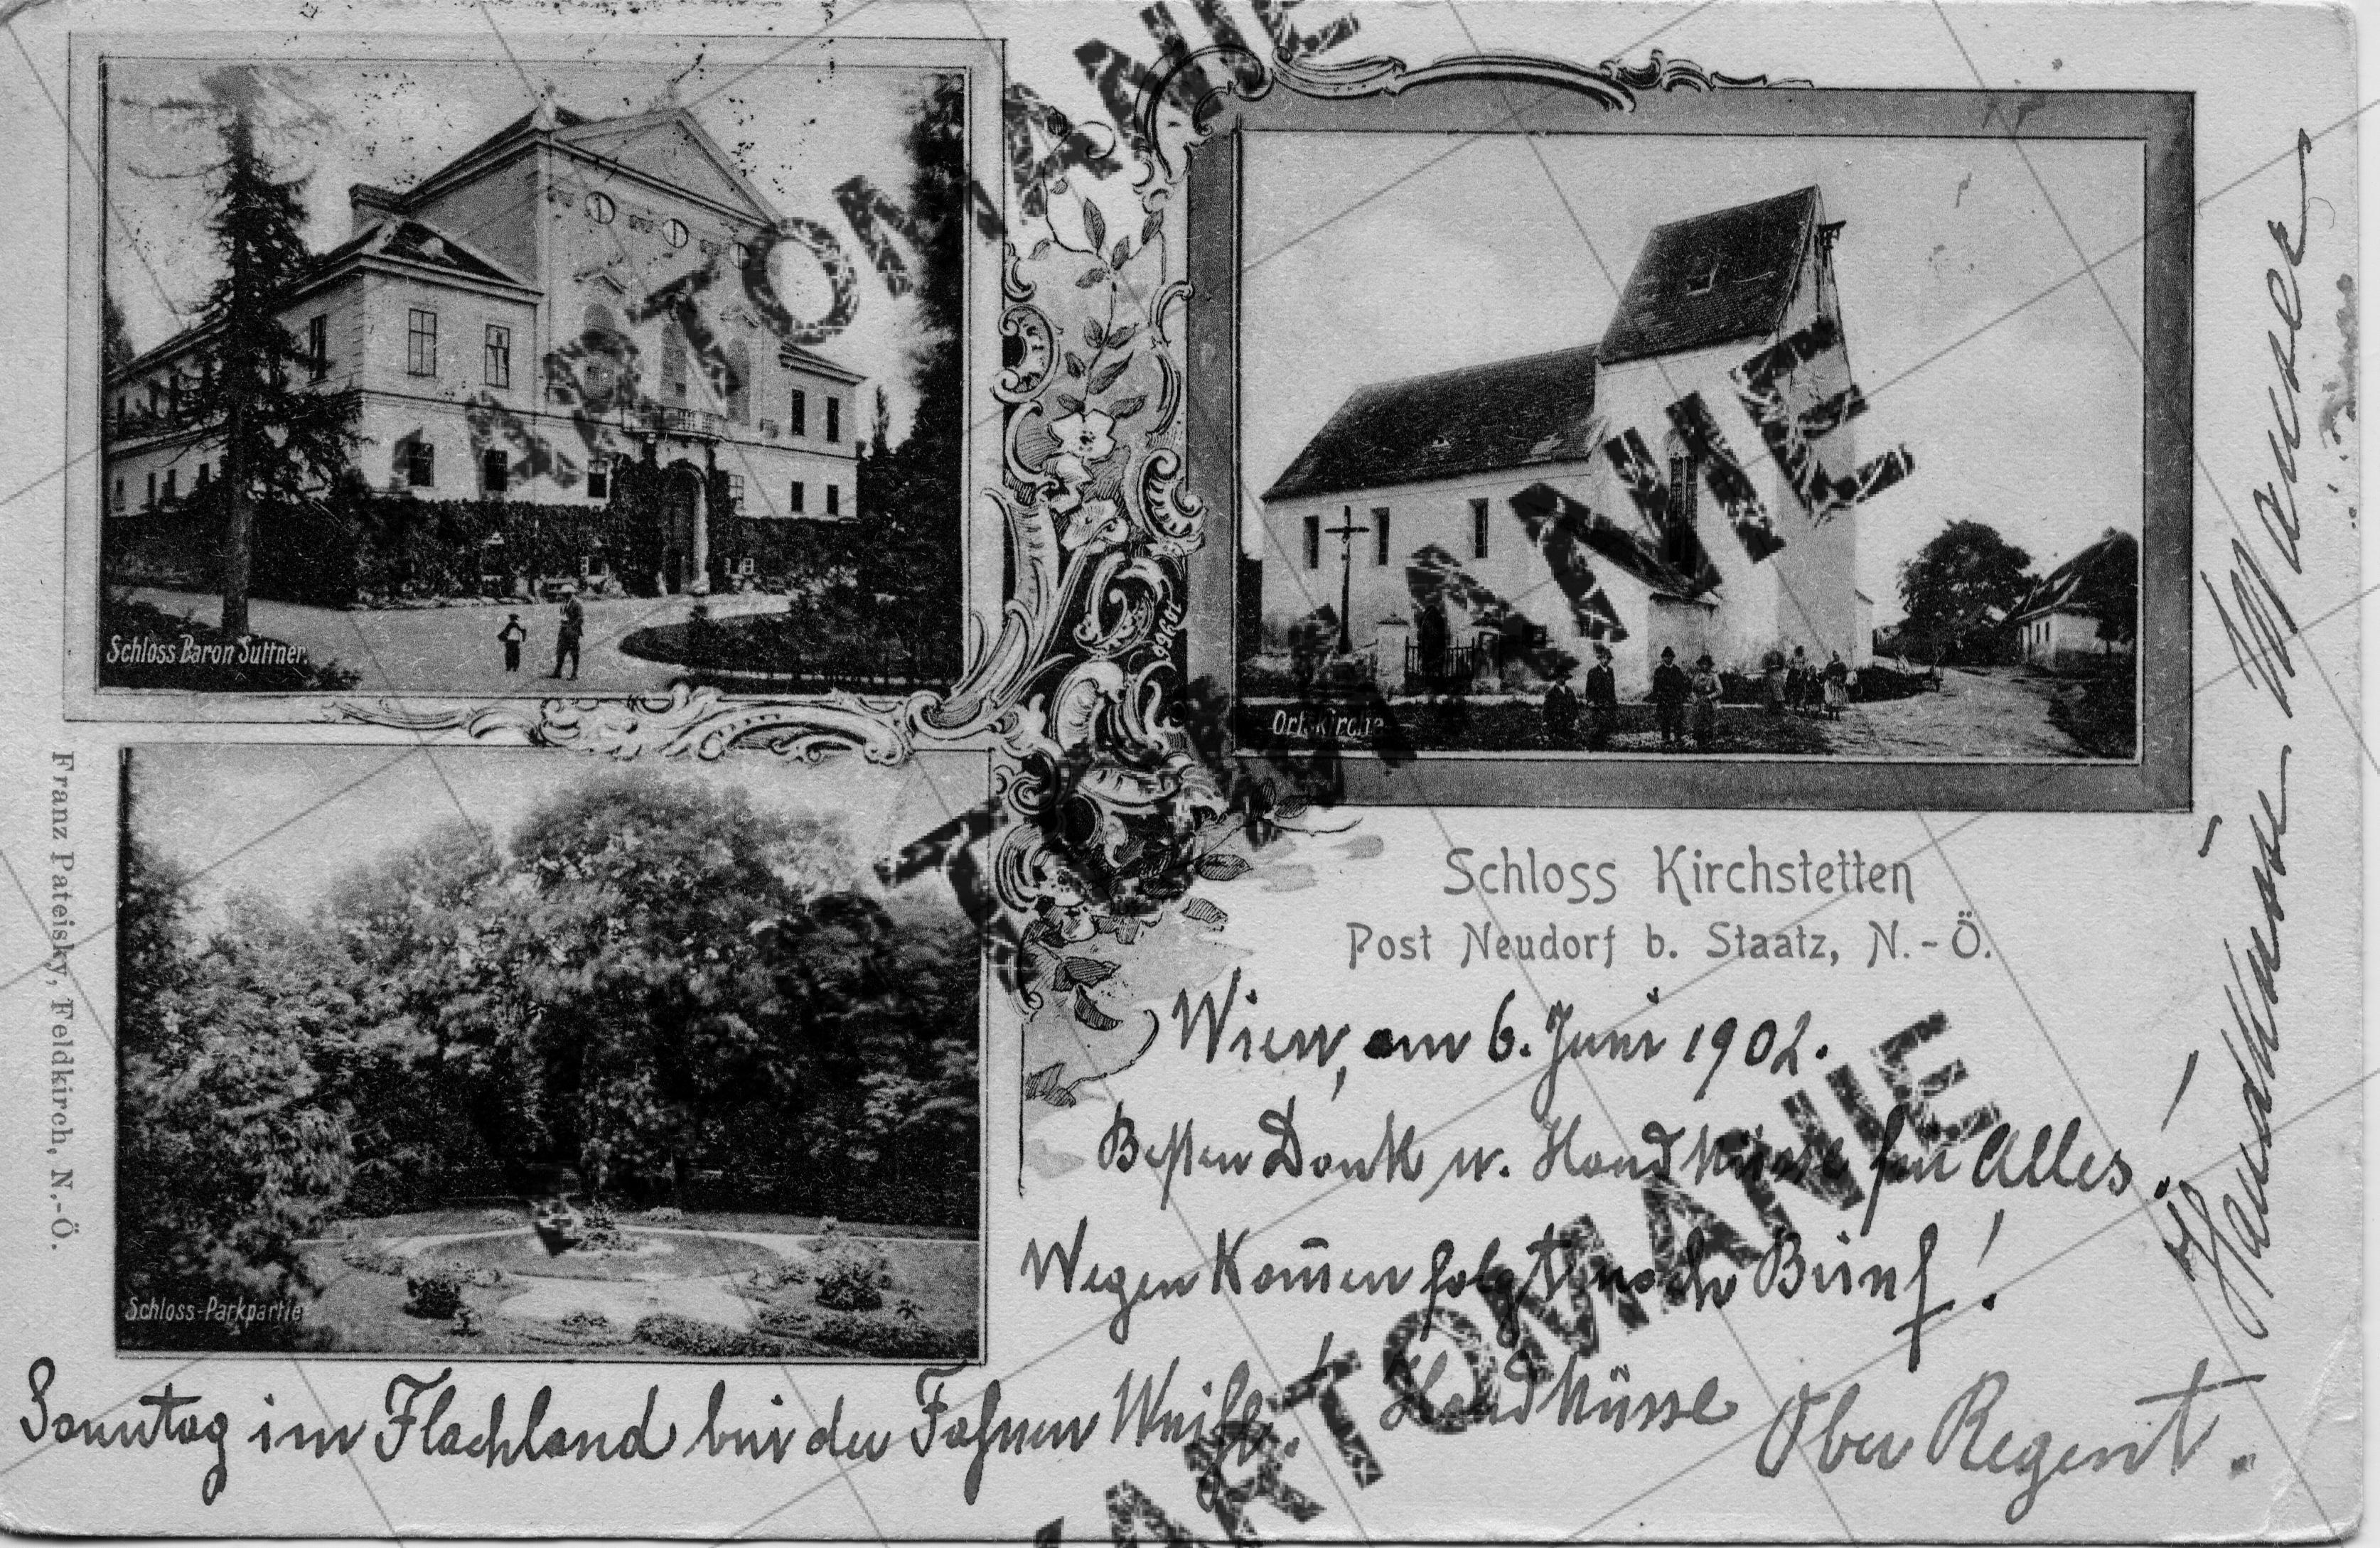 Schloss Baron Suttner.
Ort-Kirche
10366
Schloss Kirchstetten
Post Neudorf b. Staatz, N.-Ö.
Wien, am 6. Juni 1902.
Besten Dank u. Handküsse für Alles!
Wegen Kom̅en folgt noch Brief!
Schloss-Parkpartie
Sonntag im Flachland bei der Fahnen Weihe! Handküsse
Ober Regent.
Handküsse
Franz Pateisky, Feldkirch, N.-Ö.
ARTOMANIE
ARTOMANIE
ARTOMANIE